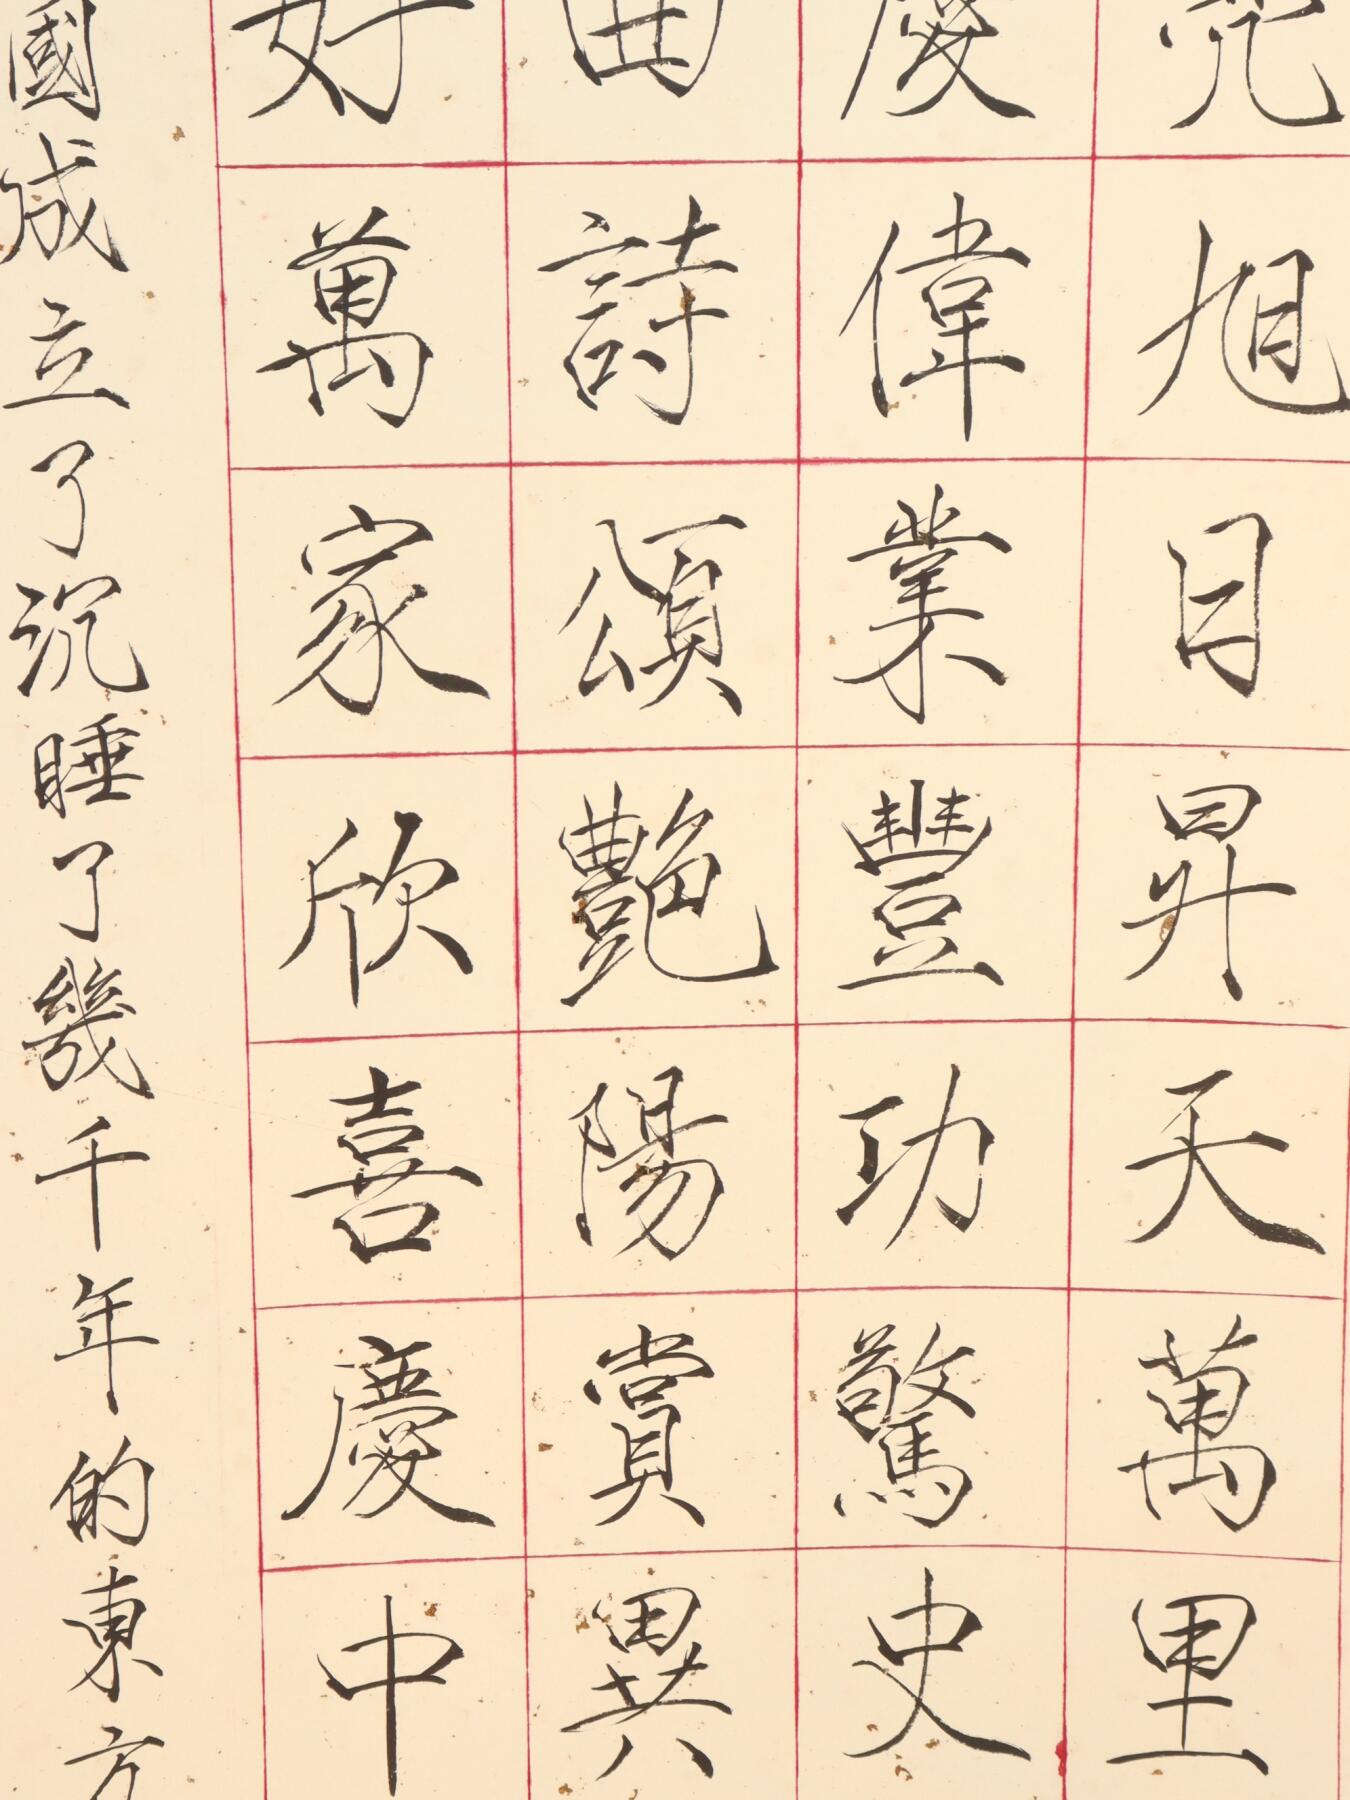 旭日昇天萬里
慶偉業豐功驚史
曲詩頌艷陽賞異
好萬家欣喜慶中
國成立了沉睡了幾千年的東方